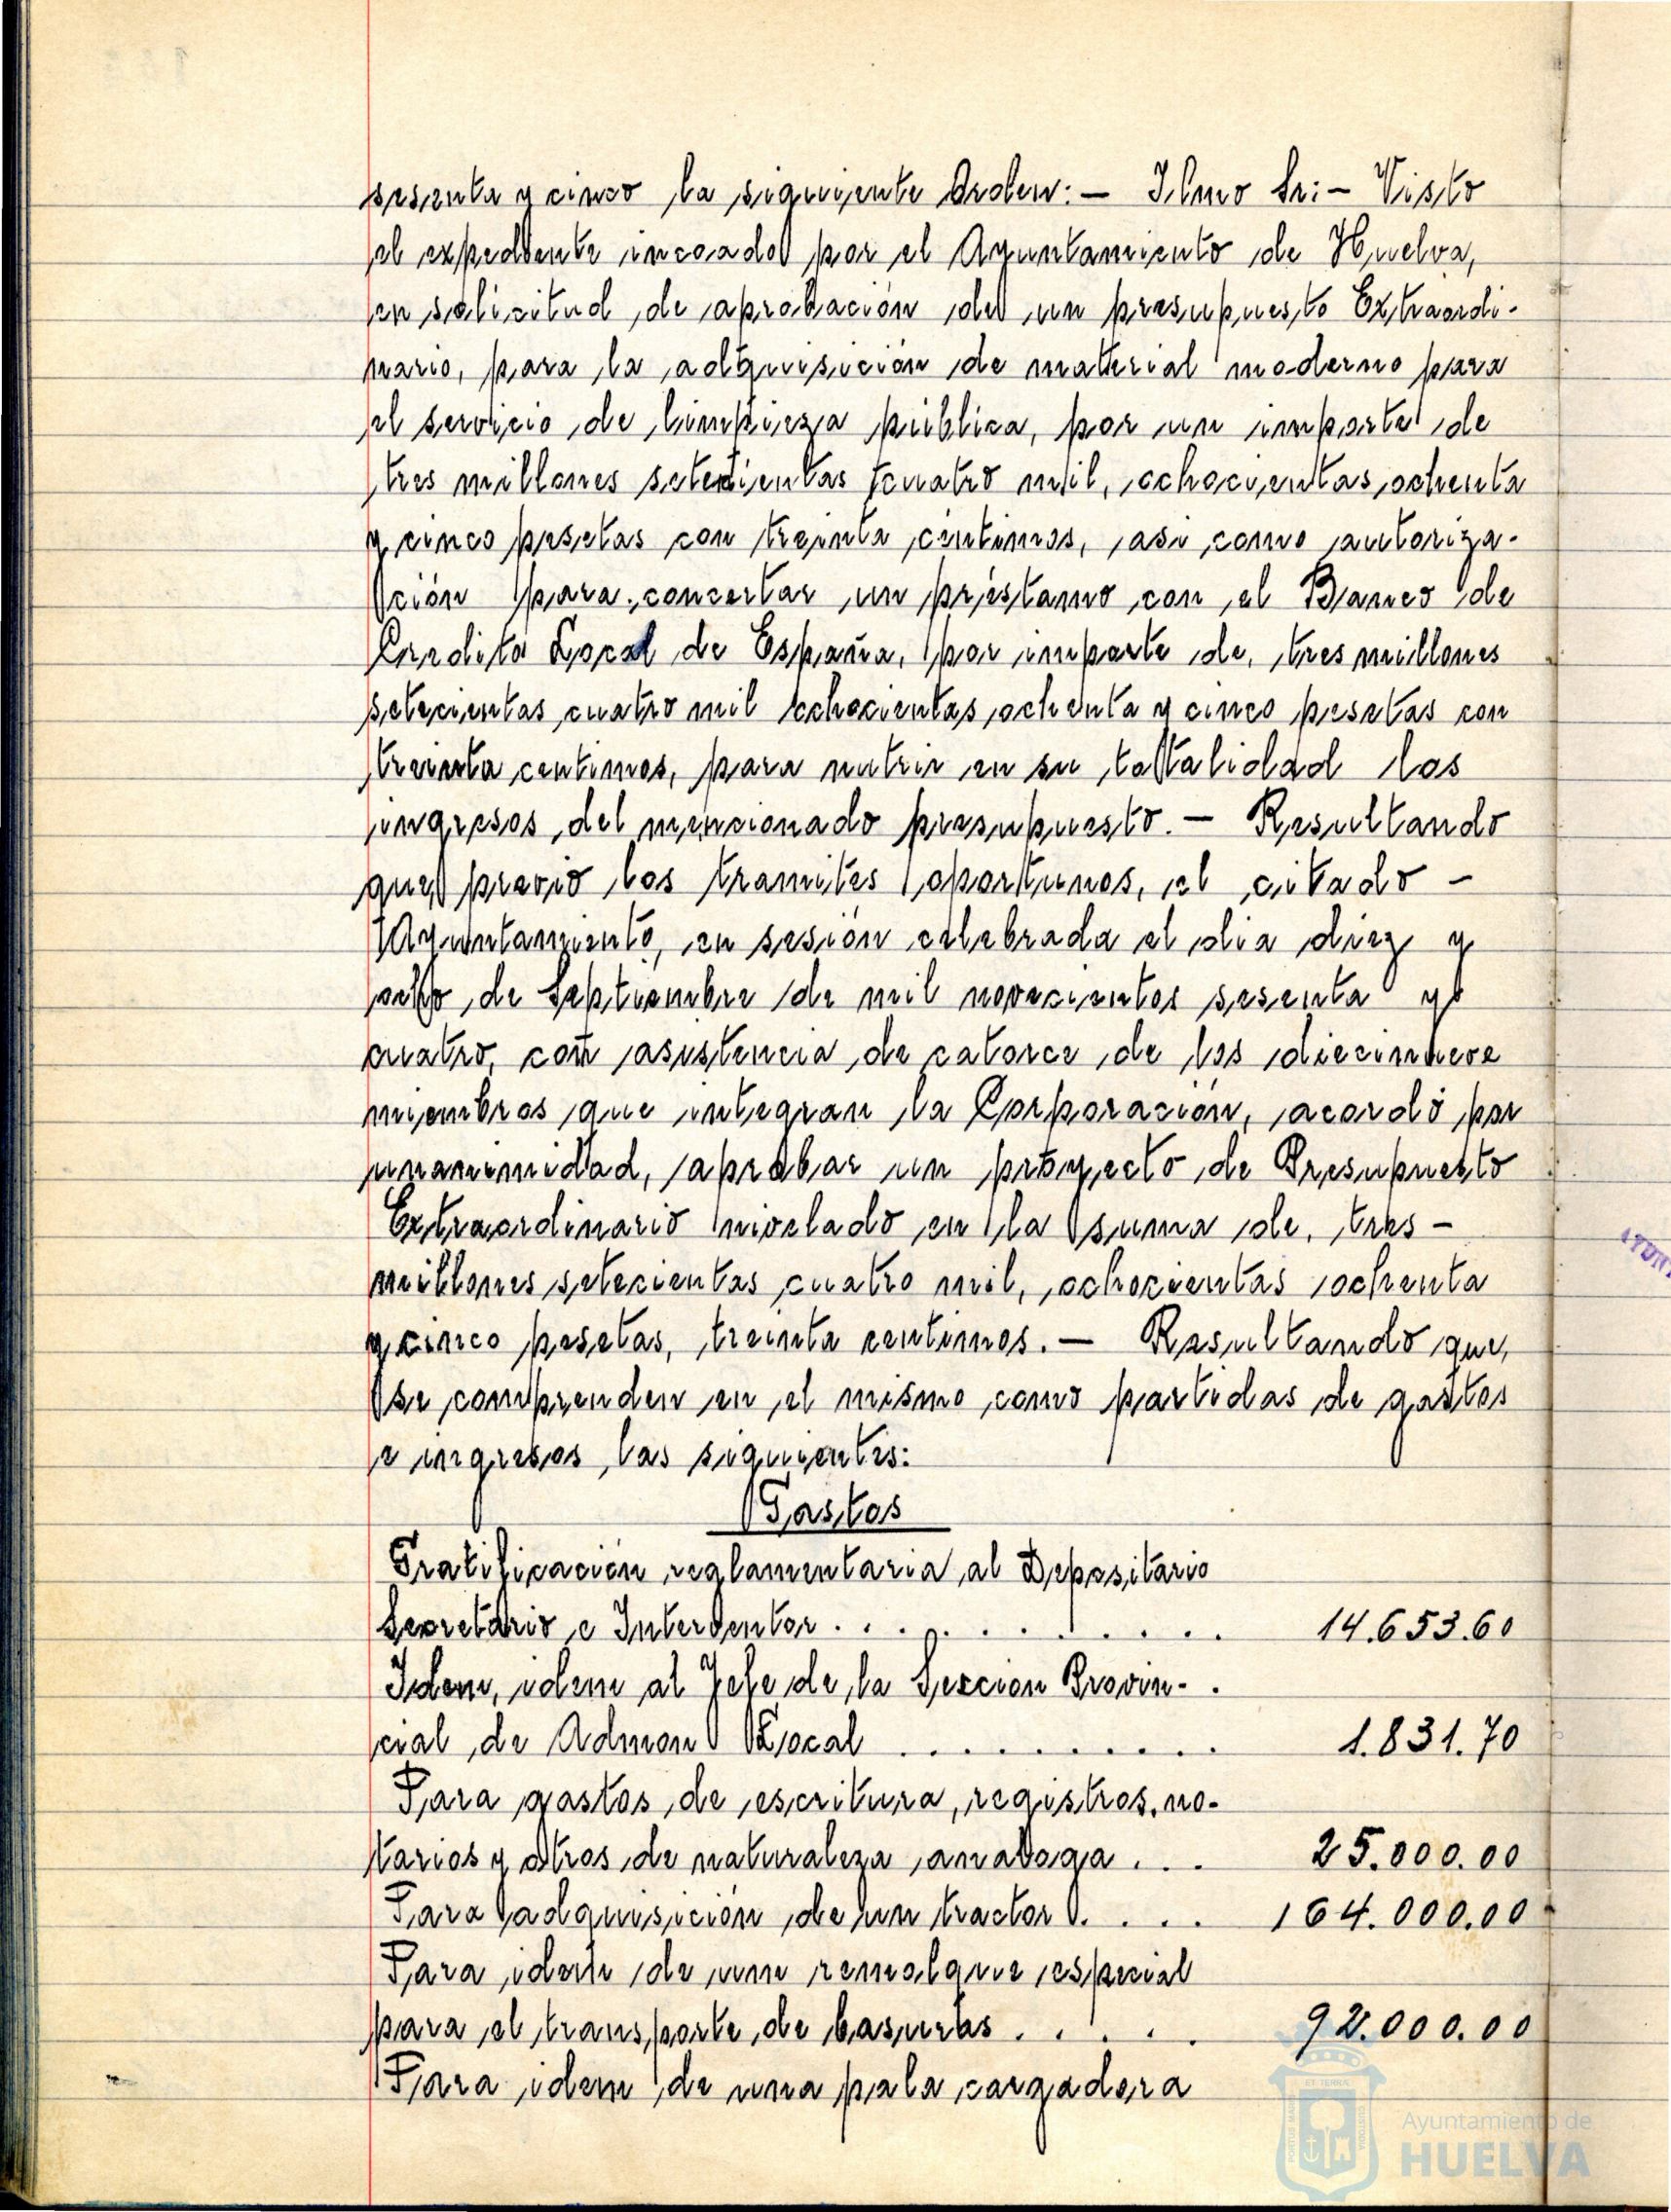 sesenta y cinco la siguiente Orden: — Ilmo Sr: — Visto
el expediente incoado por el Ayuntamiento de Huelva,
en solicitud de aprobación de un presupuesto Extraordi-
nario, para la adquisición de material moderno para
el servicio de limpieza pública, por un importe de
tres millones setecientas cuatro mil, ochocientas ochenta
y cinco pesetas con treinta céntimos, asi como autoriza-
ción para concertar un préstamo con el Banco de
Credito Local de España, por importe de, tres millones
setecientas cuatro mil ochocientas ochenta y cinco pesetas con
treinta centimos, para nutrir en su totalidad los
ingresos del mencionado presupuesto. — Resultando
que previo los tramites oportunos, el citado —
Ayuntamiento, en sesión celebrada el dia diez y
ocho de Septiembre de mil novecientos sesenta y
cuatro, con asistencia de catorce de los diecinueve
miembros que integran la Corporación, acordó por
unanimidad, aprobar un proyecto de Presupuesto
Extraordinario nivelado en la suma de, tres —
millones setecientas cuatro mil, ochocientas ochenta
y cinco pesetas, treinta centimos. — Resultando que,
se comprenden en el mismo como partidas de gastos
e ingresos las siguientes:
Gastos
Gratificación reglamentaria al Depositario
Secretario e Interventor . . . . . . . . . . . 14.653.60
Idem, idem al Jefe de la Seccion Provin- .
cial de Admon Local . . . . . . . . . 1.831.70
Para gastos de escritura, registros, no-
tarios y otros de naturaleza analoga . . . 25.000.00
Para adquisición de un tractor . . . . 164.000.00
Para idem de un remolque especial
para el transporte de basuras . . . . . 92.000.00
Para idem de una pala cargadora
Ayuntamiento de
HUELVA